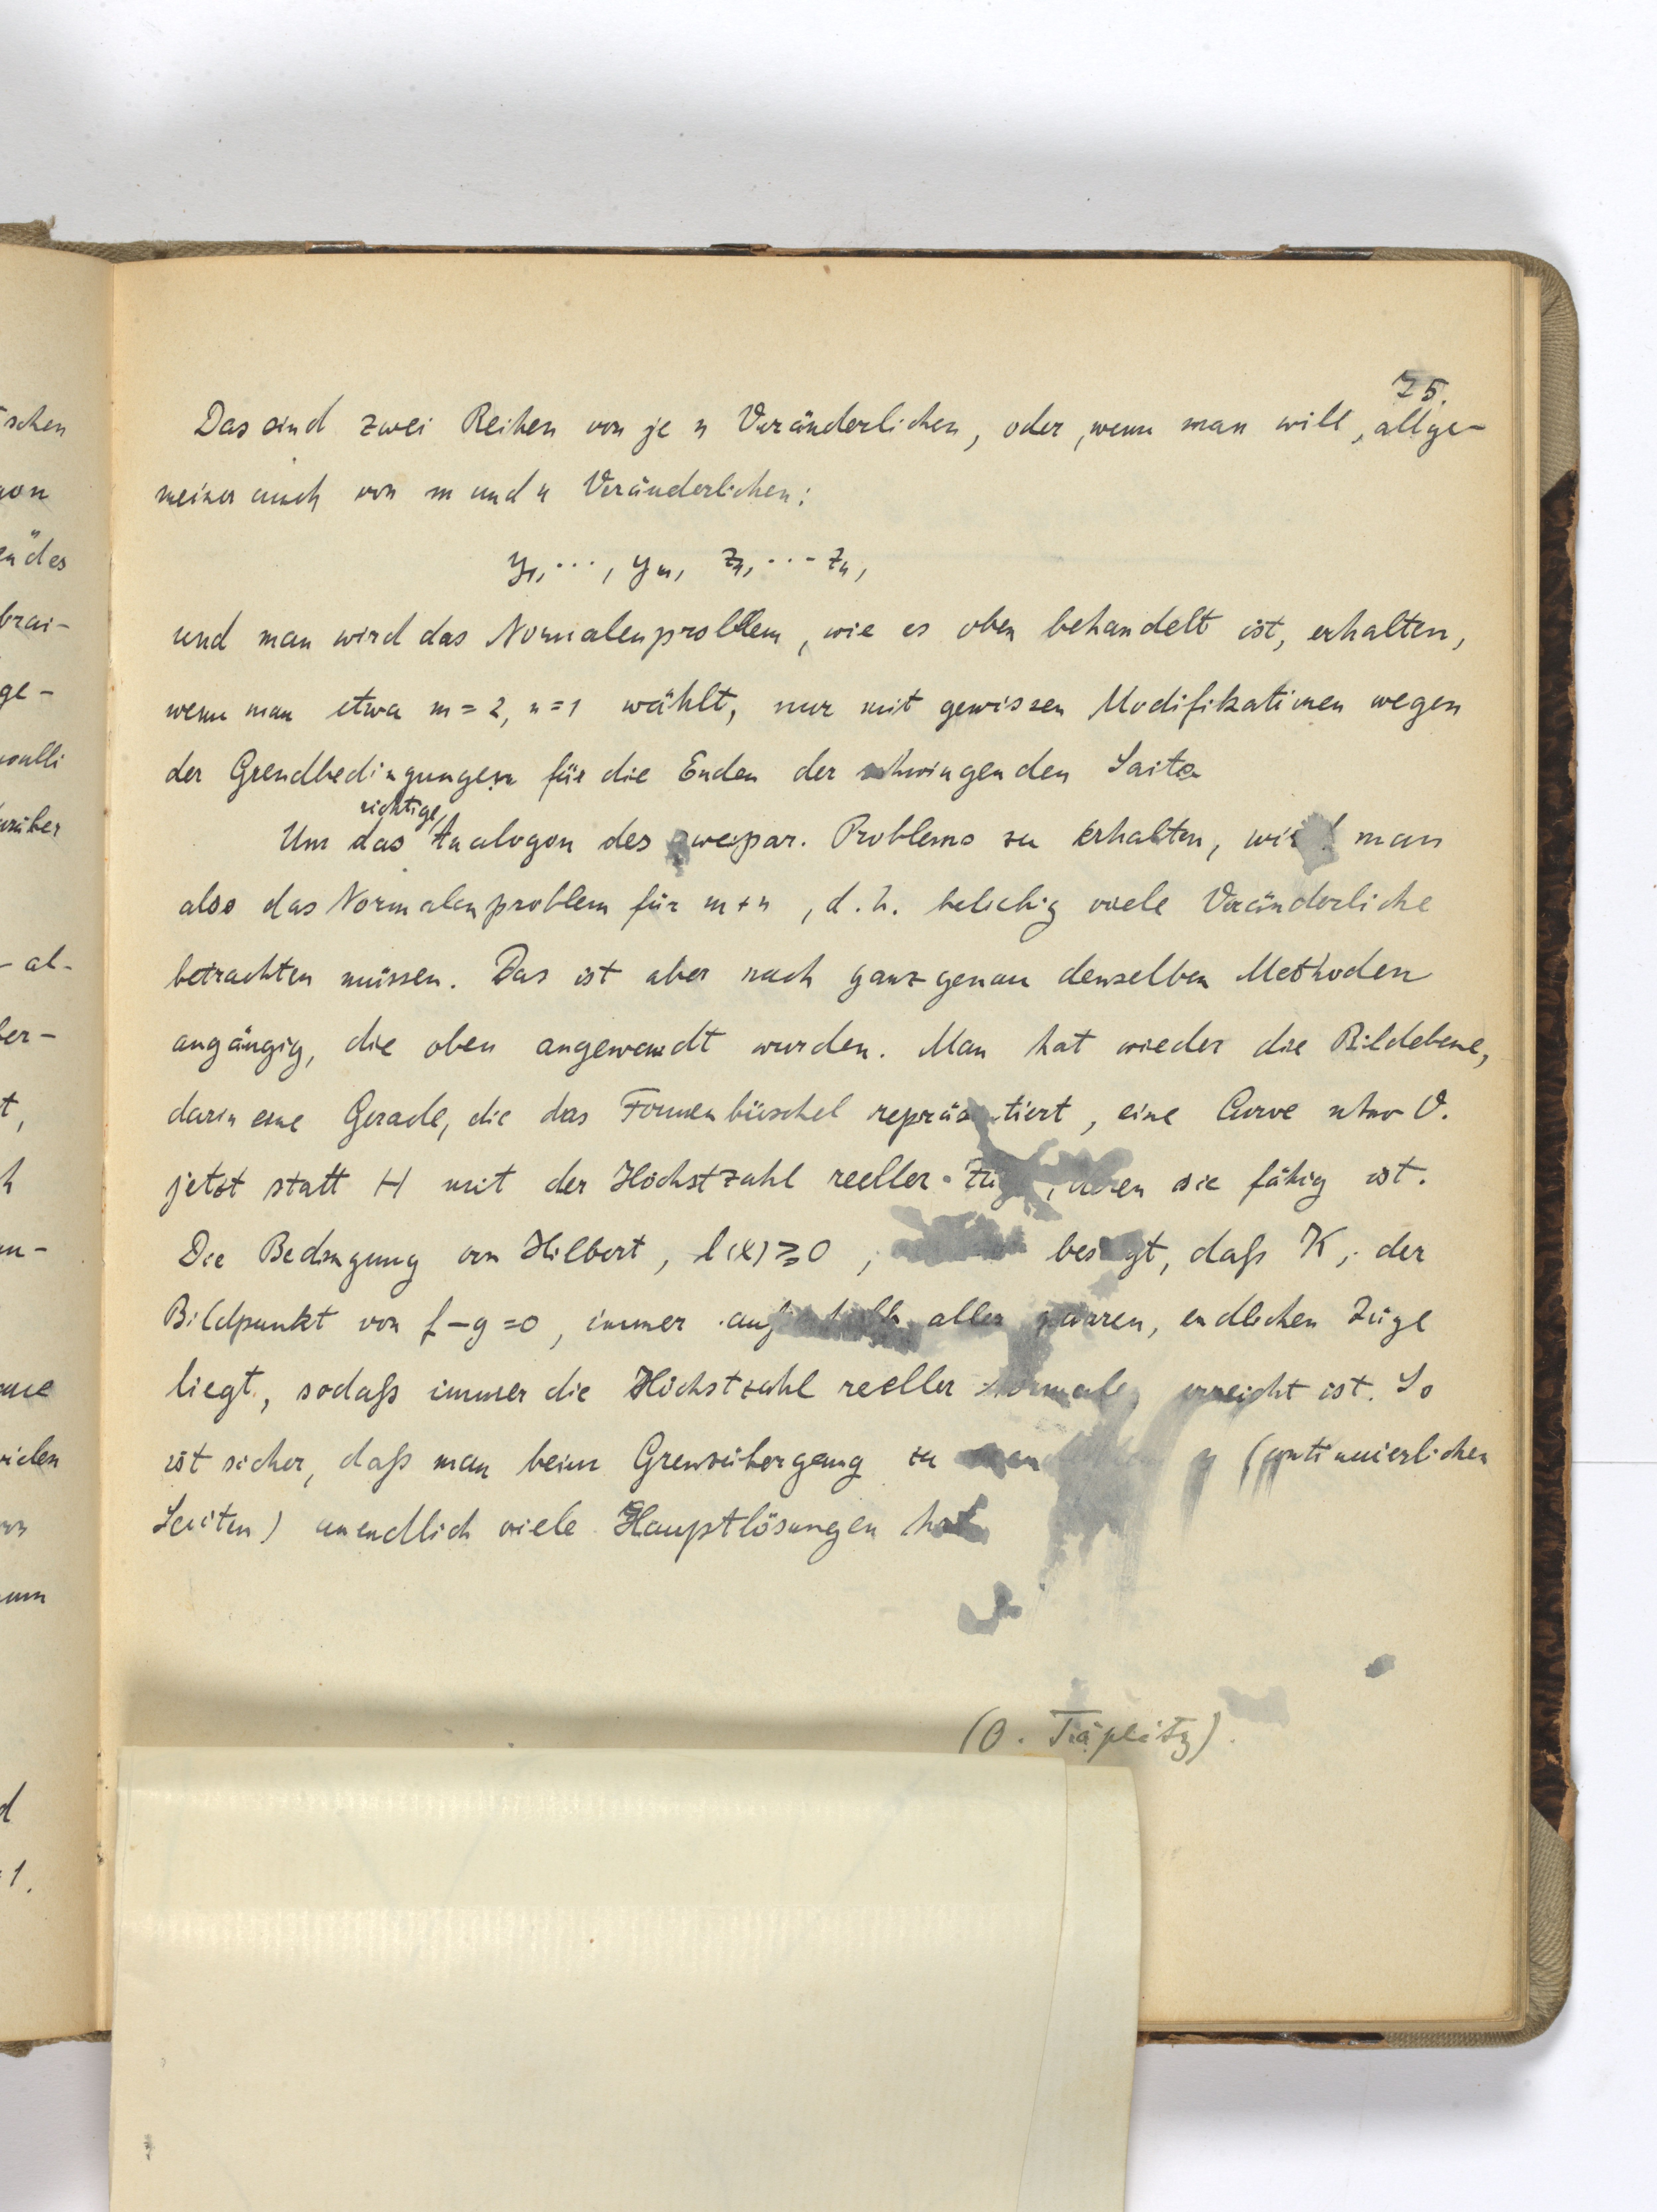 75.
Das sind zwei Reihen von je n Veränderlichen, oder, wenn man will, allge-
meiner auch von m und n Veränderlichen:
y₁, ..., yₘ, z₁, ... zₙ,
und man wird das Normalenproblem, wie es oben behandelt ist, erhalten,
wenn man etwa m = 2, n = 1 wählt, nur mit gewissen Modifikationen wegen
der Grendbedingungen für die Enden der schwingenden Saite
richtige
Um das Analogon des zweipar. Problems zu erhalten, wird man
also das Normalenproblem für m + n, d. h. beliebig viele Veränderliche
betrachten müssen. Das ist aber nach ganz genau denselben Methoden
angängig, die oben angewandt wurden. Man hat wieder die Bildebene,
darin eine Gerade, die das Formenbüschel repräsentiert, eine Curve
jetzt statt H mit der Höchstzahl reeller Züge, deren sie fähig ist.
Die Bedingung von Hilbert, l(x) ≥ 0, besagt, daß K, der
Bildpunkt von f – g = 0, immer außerhalb aller paaren, endlichen Züge
liegt, sodaß immer die Höchstzahl reeller Normalen erreicht ist. So
ist sicher, daß man beim Grenzübergang zu (continuierlichen
Saiten) unendlich viele Hauptlösungen hat
(O. Töplitz).
schen
gon
ä des
brai-
ge-
noulli
arüber
- al-
ber-
t,
h
un-
rielen
um
d
1.